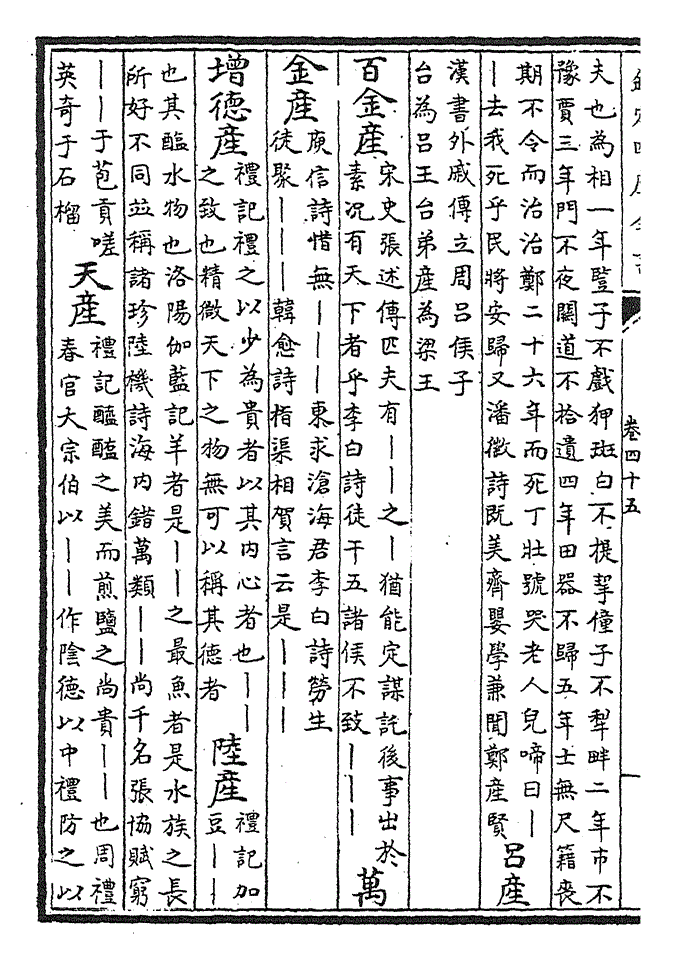 欽定四庫全書
卷四十五
一
夫也為相一年豎子不戲狎斑白不提挈僮子不犂畔二年市不
豫賈三年門不夜關道不拾遺四年田器不歸五年士無尺籍喪
期不令而治治鄭二十六年而死丁壯號哭老人兒啼曰丨
丨去我死乎民將安歸又潘徽詩既美齊嬰學兼聞鄭產賢
呂產
漢書外戚傳立周呂侯子
台為呂王台弟產為梁王
百金產
宋史張述傳匹夫有丨丨之丨猶能定謀託後事出於
素況有天下者乎李白詩徒干五諸侯不致丨丨丨
萬
金產
庾信詩惜無丨丨丨東求滄海君李白詩勞生
徒聚丨丨丨韓愈詩指渠相賀言云是丨丨丨
增德產
禮記禮之以少為貴者以其內心者也丨丨
之致也精微天下之物無可以稱其德者
陸產
禮記加
豆丨丨
也其醢水物也洛陽伽藍記羊者是丨丨之最魚者是水族之長
所好不同並稱諸珍陸機詩海內錯萬類丨丨尚千名張協賦窮
丨丨于苞貢嗟
英奇于石榴
天產
禮記醯醢之美而煎鹽之尚貴丨丨也周禮
春官大宗伯以丨丨作陰德以中禮防之以